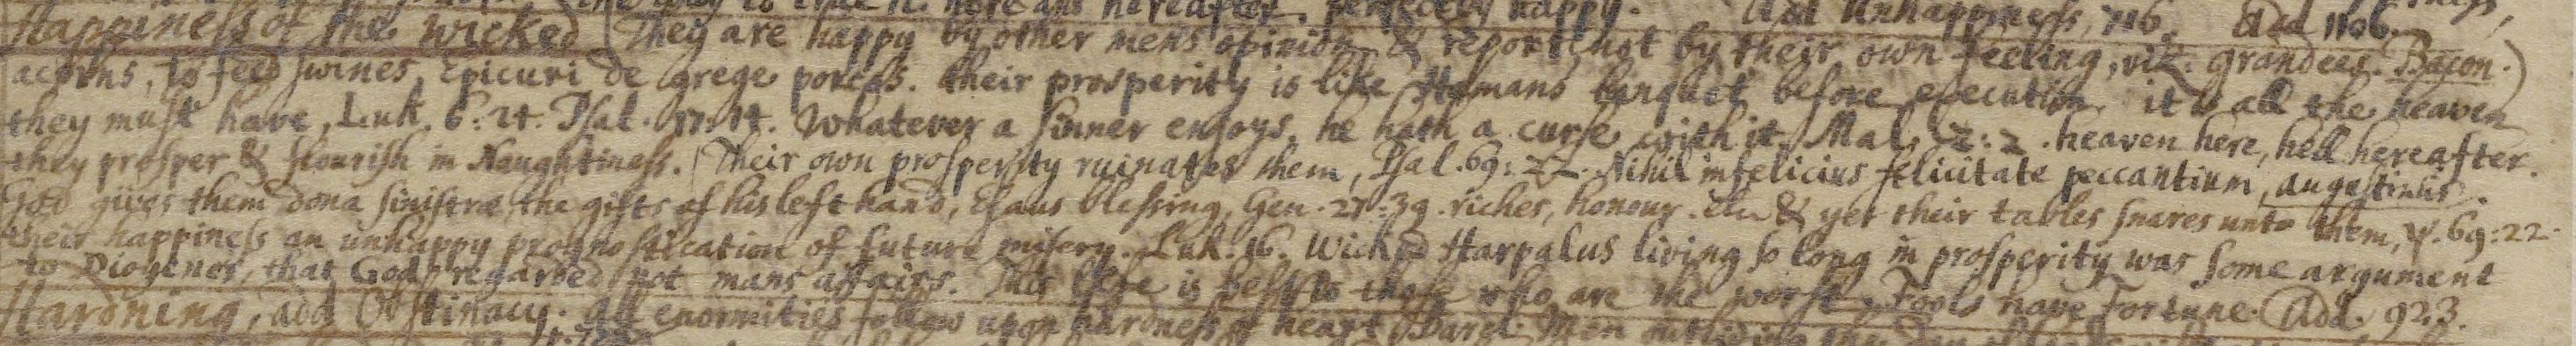 the way to true n. here and hereafter. perfectly happy. Add Unhappiness, 716. Add 1106.
Happiness of the wicked (They are happy by other mens opinion & report, not by their own feeling, viz. grandees. Bacon.)
acorns, to feed swines, Epicuri de grege porcos. their prosperity is like Hamans banquet before execution. it is all the heaven
they must have, Luk. 6: 24. Psal. 17: 14. Whatever a sinner enjoys, he hath a curse with it. Mal. 2: 2. heaven here, hell hereafter.
they prosper & flourish in Naughtiness. (Their own prosperity ruinates them, Psal. 69: 22. Nihil infelicius felicitate peccantium, augustinus.
God gives them dona sinistræ, the gifts of his left hand, Esaus blessing, Gen. 27: 39. riches, honour. &c. & yet their tables snares unto them, ψ. 69: 22.
their happiness an unhappy prognostication of future misery. Luk. 16. Wicked Harpalus living so long in prosperity was some argument
to Diogenes, that God regarded not mans affairs. This life is best to those who are the worst. Fools have Fortune. Add. 923.
Hardning, add Obstinacy. all enormities follow upon hardness of heart. Men outliding the day of